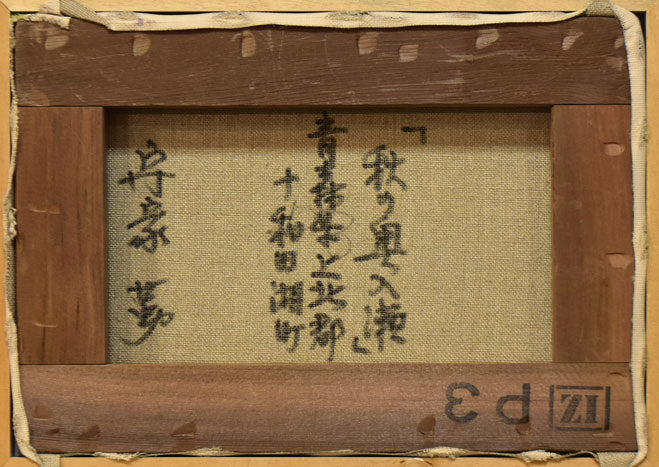 「秋の奥入瀬」
青森県上北郡
十和田湖町
夢
P3
IZ